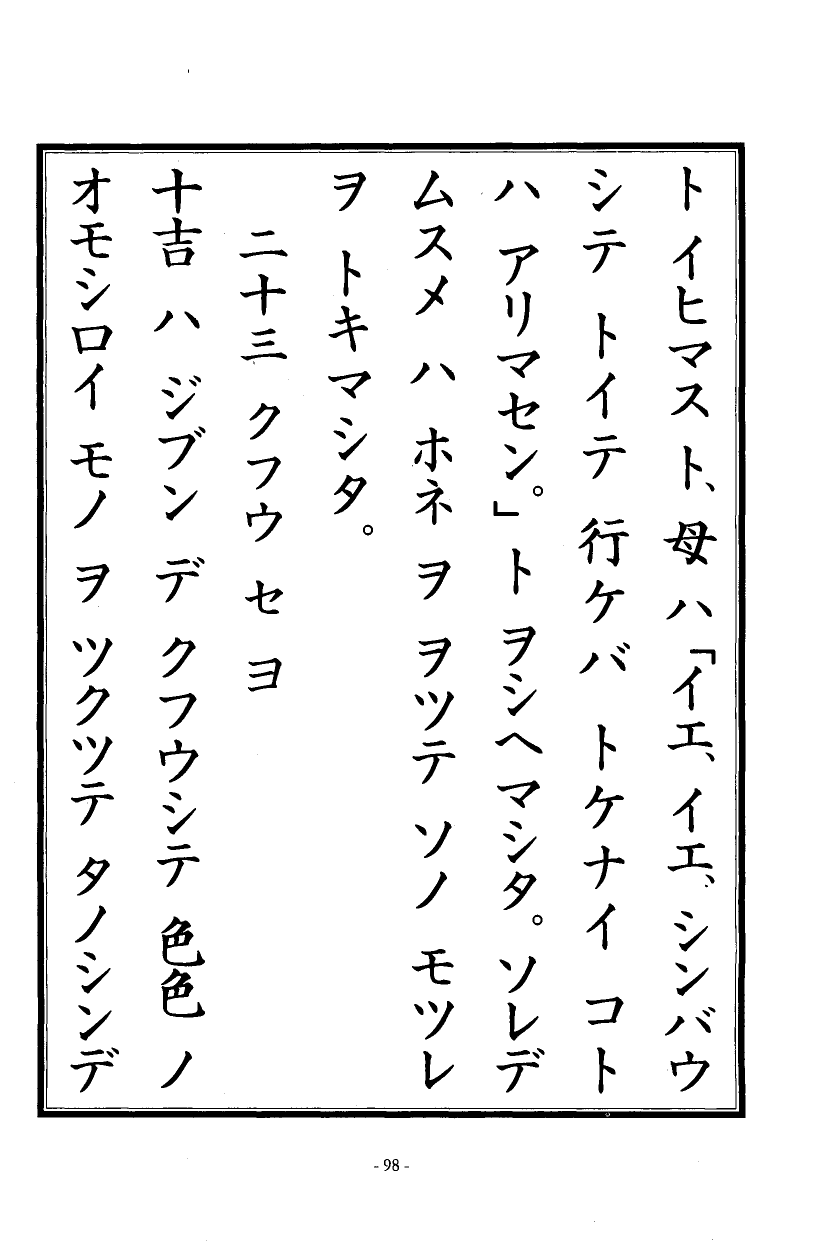 ト イヒマスト、母ハ「イエ、イエ、シンバウ
シテ トイテ 行ケバ トケナイ コト
ハ アリマセン。」ト ヲシヘマシタ。ソレデ
ムスメ ハ ホネ ヲ ヲツテ ソノ モツレ
ヲ トキマシタ。
二十三 クフウ セ ヨ
十吉 ハ ジブン デ クフウシテ 色色 ノ
オモシロイ モノ ヲ ツクツテ タノシンデ
- 98 -